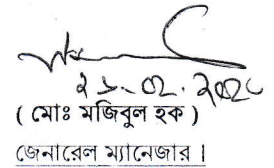 ২১.০২.২০২৮
( মোঃ মজিবুল হক )
জেনারেল ম্যানেজার।